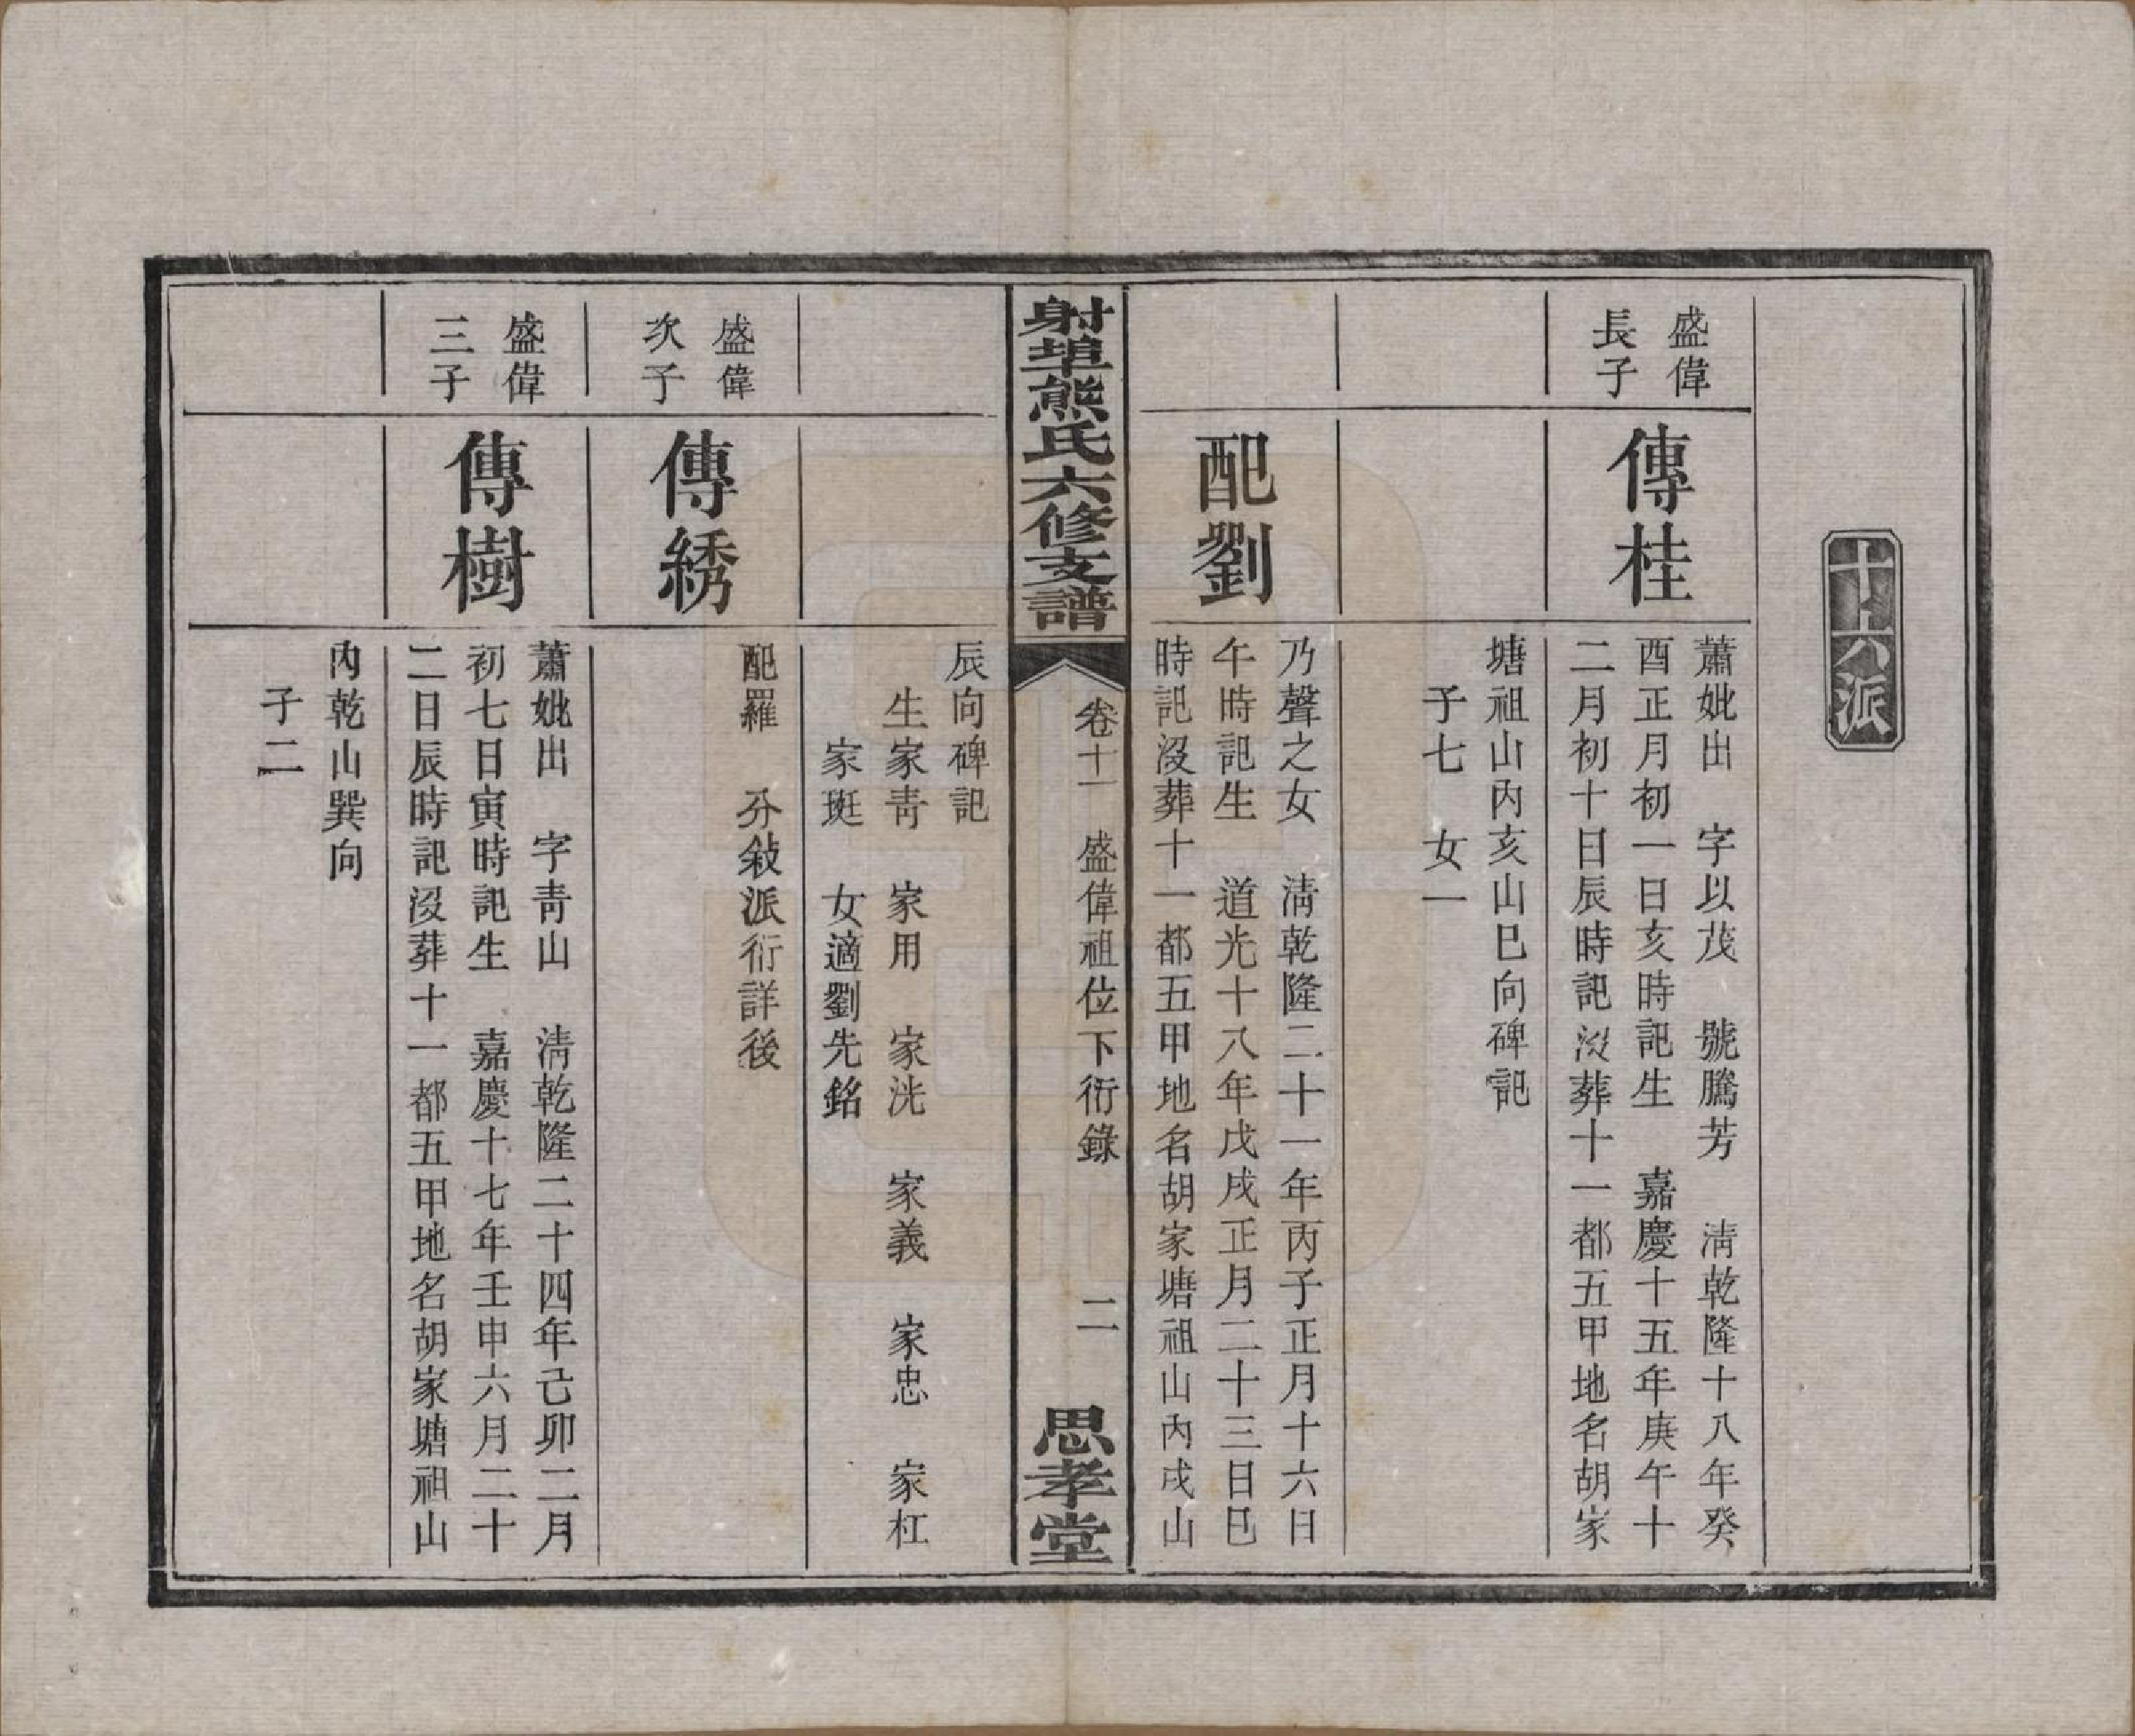 十六派
盛偉
長子
傳桂
蕭妣出　字以茂　號騰芳　淸乾隆十八年癸
酉正月初一日亥時記生　嘉慶十五年庚午十
二月初十日辰時記沒葬十一都五甲地名胡家
塘祖山內亥山巳向碑記
子七　女一
配劉
乃聲之女　淸乾隆二十一年丙子正月十六日
午時記生　道光十八年戊戌正月二十三日巳
時記沒葬十一都五甲地名胡家塘祖山內戌山
射埠熊氏六修支譜
卷十一　盛偉祖位下衍錄　二
思孝堂
辰向碑記
生家靑　家用　家洸　家義　家忠　家杠
家珽　女適劉先銘
盛偉
次子
傳綉
配羅　分敍派衍詳後
盛偉
三子
傳樹
蕭妣出　字靑山　淸乾隆二十四年己卯二月
初七日寅時記生　嘉慶十七年壬申六月二十
二日辰時記沒葬十一都五甲地名胡家塘祖山
內乾山巽向
子二